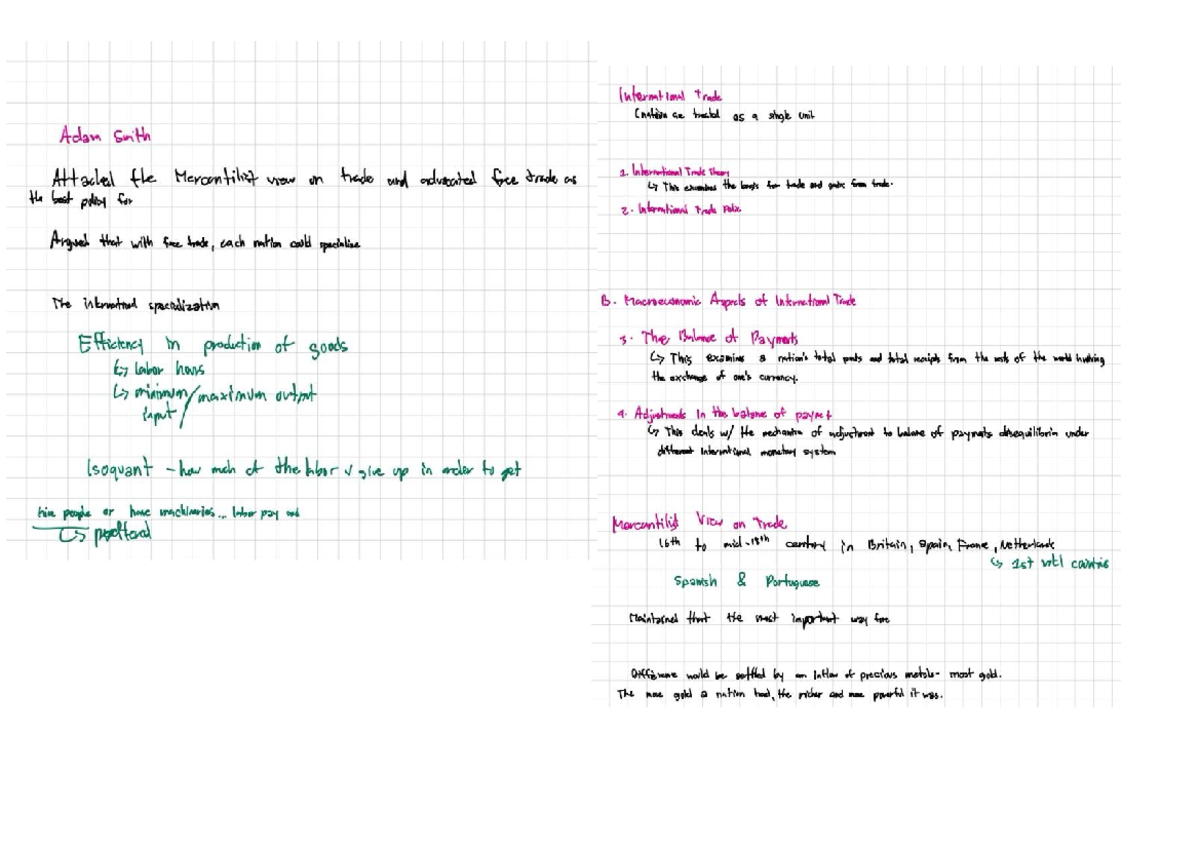 Adam Smith
Attacked the Mercantilist view on trade and advocated free trade as
the best policy for
Argued that with free trade, each nation could specialize
The international specialization
Efficiency in production of goods
↳ labor hours
↳ minimum/maximum output
input/
Isoquant - how much of the labor u give up in order to get
hire people or have machineries... labor pay
↳
International Trade
are treated as a single unit
1. International Trade Theory
↳ This examines the basis for trade and gains from trade.
2. International Trade
B. Macroeconomic Aspects of International Trade
3. The Balance of Payments
↳ This examines a nation's total and total receipts from the of the world involving
the exchange of one's currency.
4. Adjustments In the balance of
↳ This deals w/ the of adjustment to balance of payments under
different International monetary system
Mercantilist View on Trade
16th to mid-18th century in Britain, Spain, France, Netherlands
↳ 1st
Spanish & Portuguese
Maintained that the most important way for
Difference would be settled by an Inflow of precious metals- most gold.
The more gold a nation had, the richer and more powerful it was.